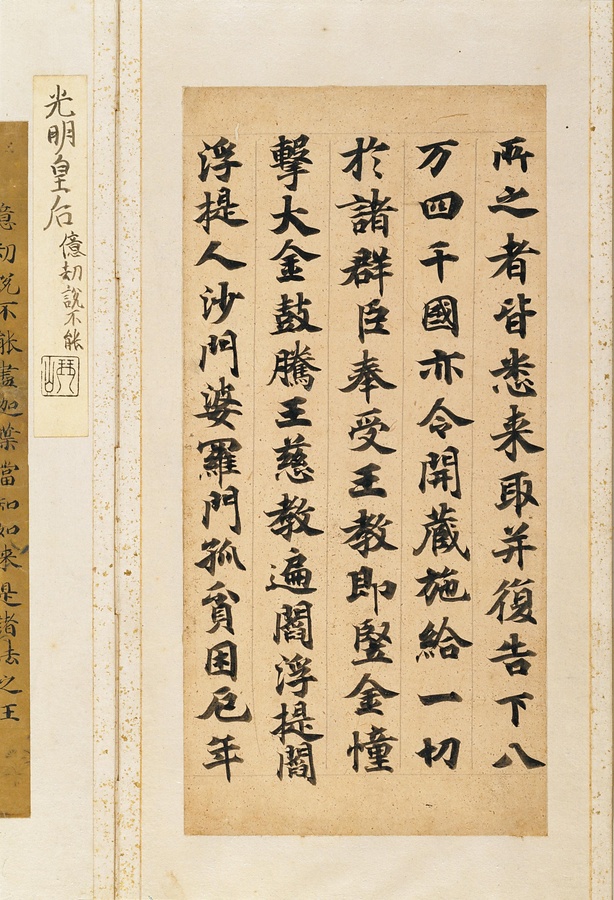 所之者皆悉来取并復告下八
万四千國亦令開蔵施給一切
於諸群臣奉受王教即竪金憧
撃大金鼓騰王慈教遍閻浮提閻
浮提人沙門婆羅門孤貧困厄年
光明皇后 億劫說不能
琴山
億劫說不能盡迦葉當知如来是諸法之王